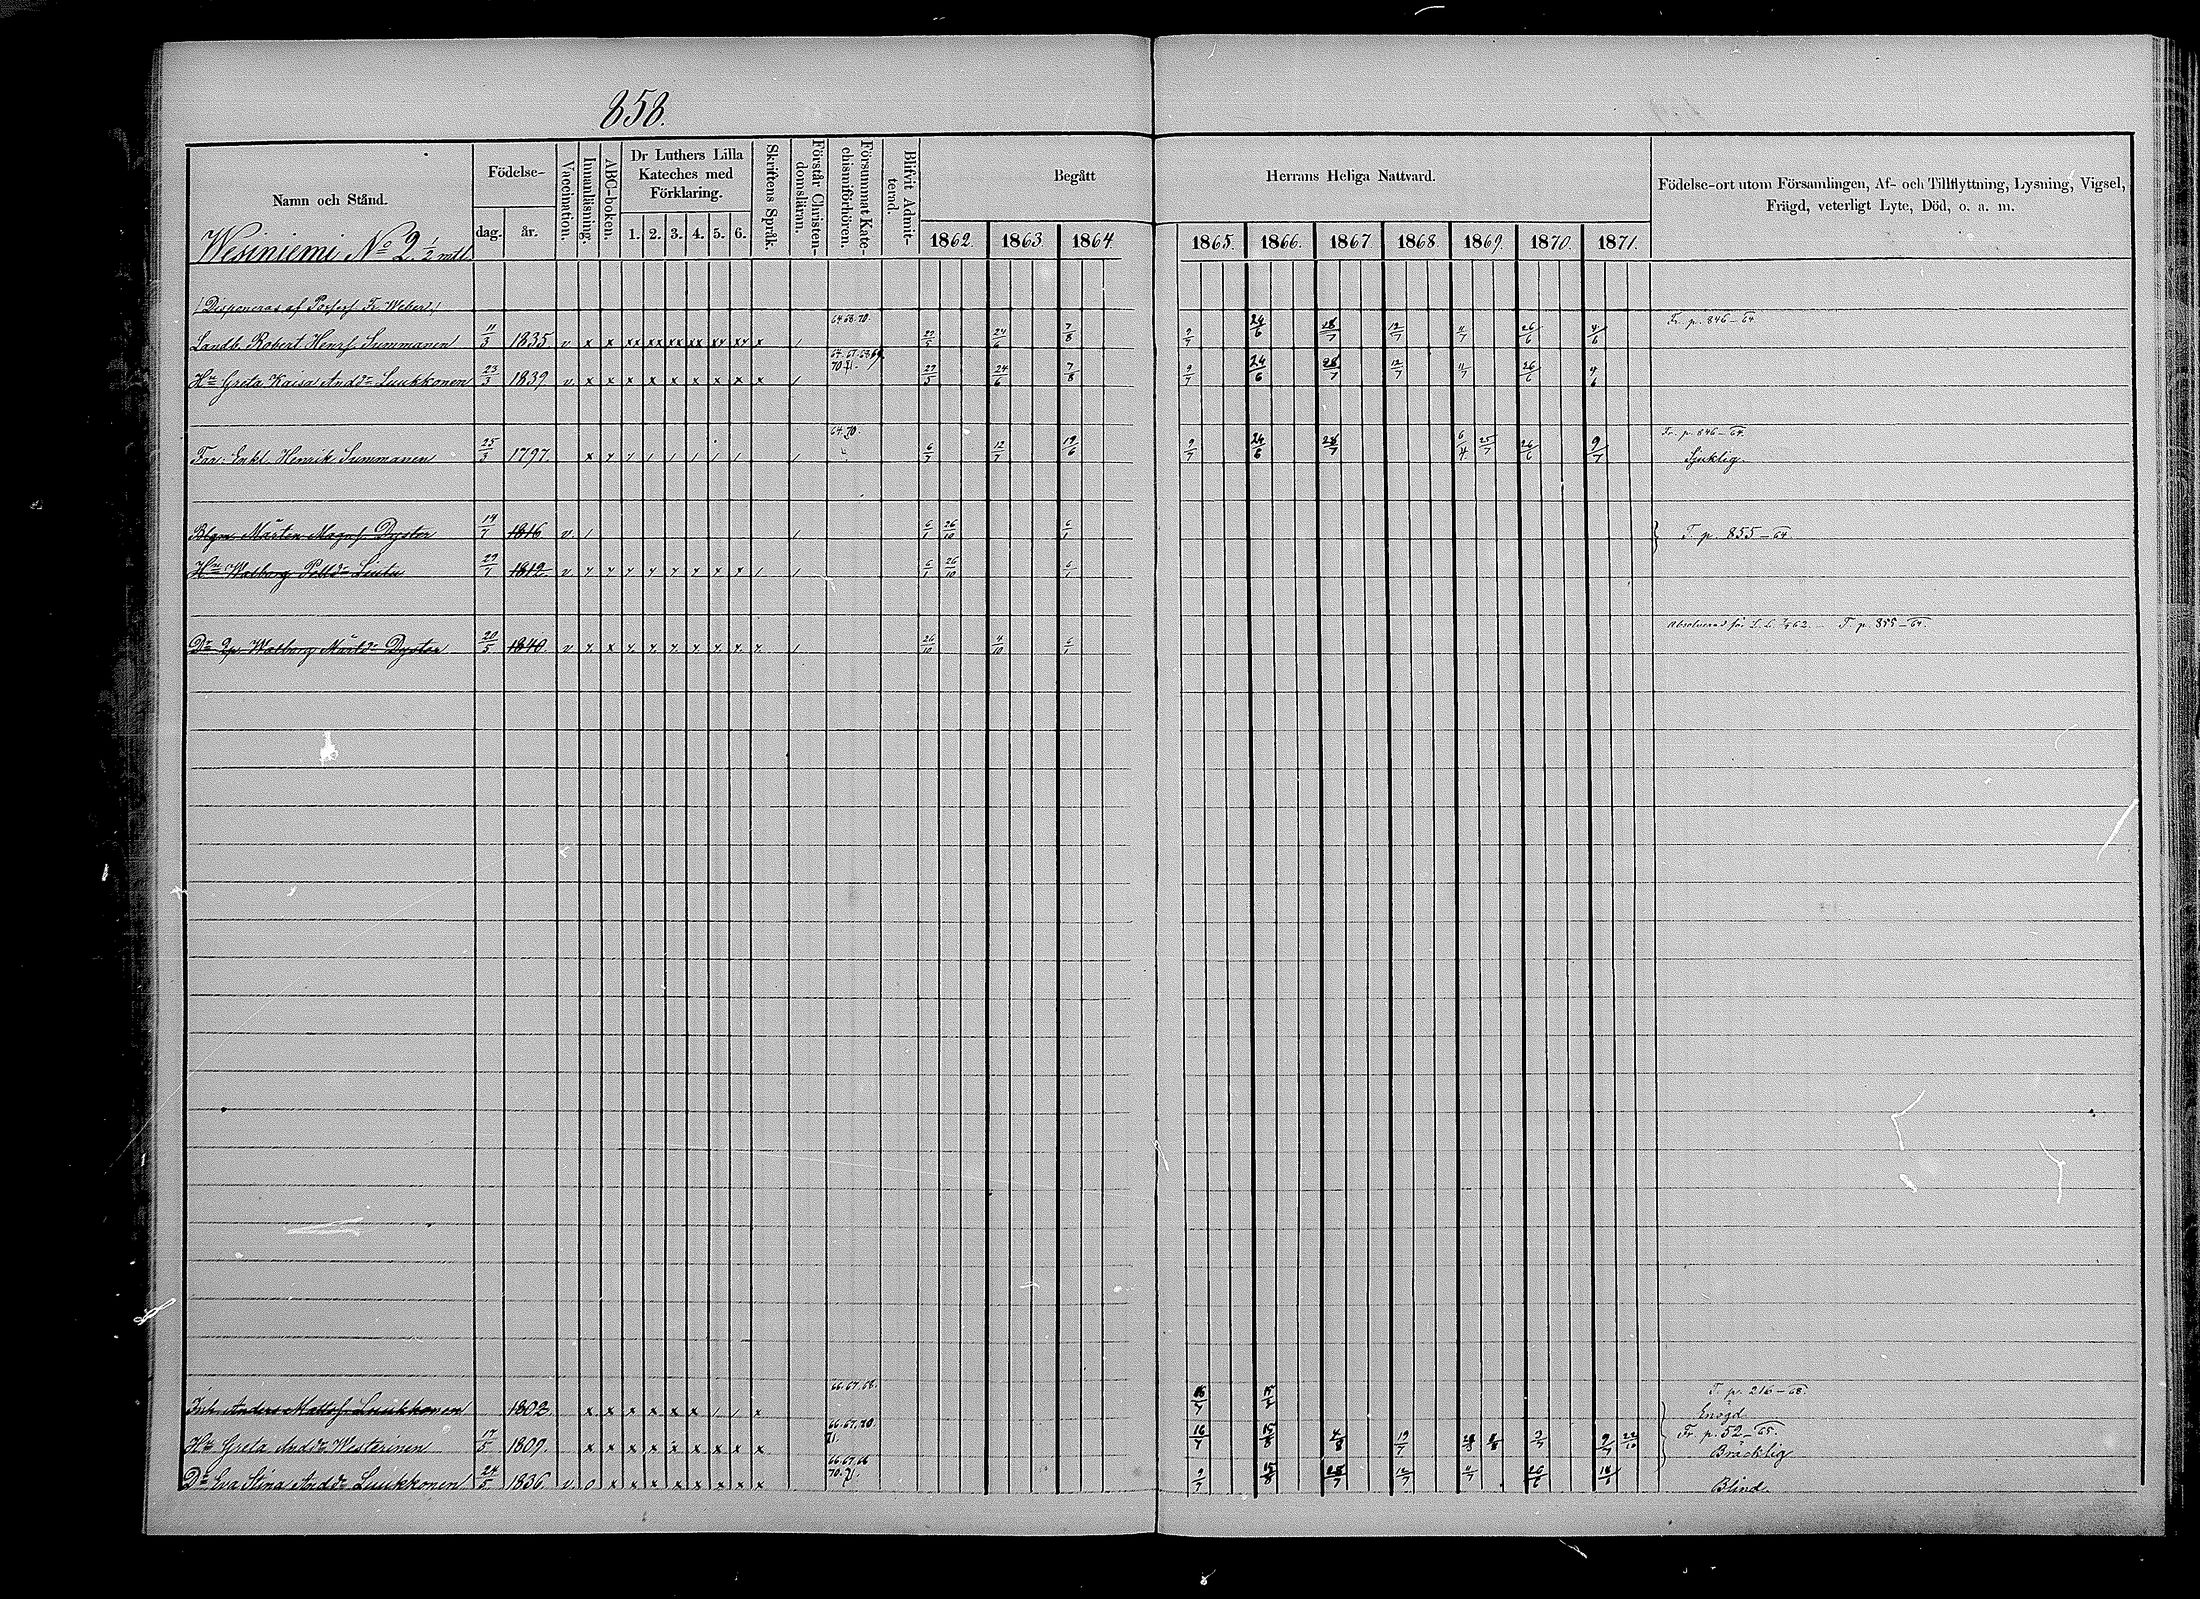 858.
Namn och Stånd.
Födelse-
dag. år.
Vaccination.
Innanläsning.
ABC-boken.
Dr Luthers Lilla
Kateches med
Förklaring.
1. 2. 3. 4. 5. 6.
Skriftens Språk.
Förstår Christen-
domsläran.
Försummat Kate-
chismiförhören.
Blifvit Admit-
terad.
Begått Herrans Heliga Nattvard.
1862. 1863. 1864. 1865. 1866. 1867. 1868. 1869. 1870. 1871.
Födelse-ort utom Församlingen, Af- och Tillflyttning, Lysning, Vigsel,
Frägd, veterligt Lyte, Död, o. a. m.
Wesiniemi No 2. 1/2 mtl
Disponeras af Fr. Weber
64. 68. 70.
Landb. Robert Henr. Summanen 11/3 1835 v x x xx xx xx xx xx xx x 27/5 24/6 7/8 9/7 24/6 28/7 12/7 11/7 26/6 4/6 Fr. p. 846-64
Hu Greta Kaisa Andd. Luukkonen 23/3 1839 v x x x x x x x x x 27/5 24/6 7/8 9/7 24/6 28/7 12/7 11/7 26/6 4/6
64. 70.
Far: Enkl. Henrik Summanen 25/3 1797. 6/7 12/7 19/6 9/7 24/6 28/7 6/4 25/7 26/6 9/7 Fr. p. 846-64.
Sjuklig.
Mårten Dyster 14/7 1816 v 6/1 26/10 6/1 T. p. 855-64.
Hu Walborg Lintu 29/1 1812 v 6/1 26/10 6/1
Dr Walborg Mårtd. Dyster 20/5 1840 v 26/10 4/10 6/1 Absolverad för L. L. T. p. 855-64.
66. 67. 68.
Inh. Anders Matts. Luukkonen 1802. 16/7 15/8 T. p. 216-68.
Enögd
66. 67. 70.
71.
Hu Greta Andd. Westerinen 17/5 1809. 16/7 15/8 4/8 19/7 9/7 22/10 Fr. p. 52-65.
Bräcklig
70. 71.
Dr Eva Stina Andd. Luukkonen 24/5 1836 v o x x x x x x x x 9/7 15/8 28/7 12/7 11/7 26/6 Blind.